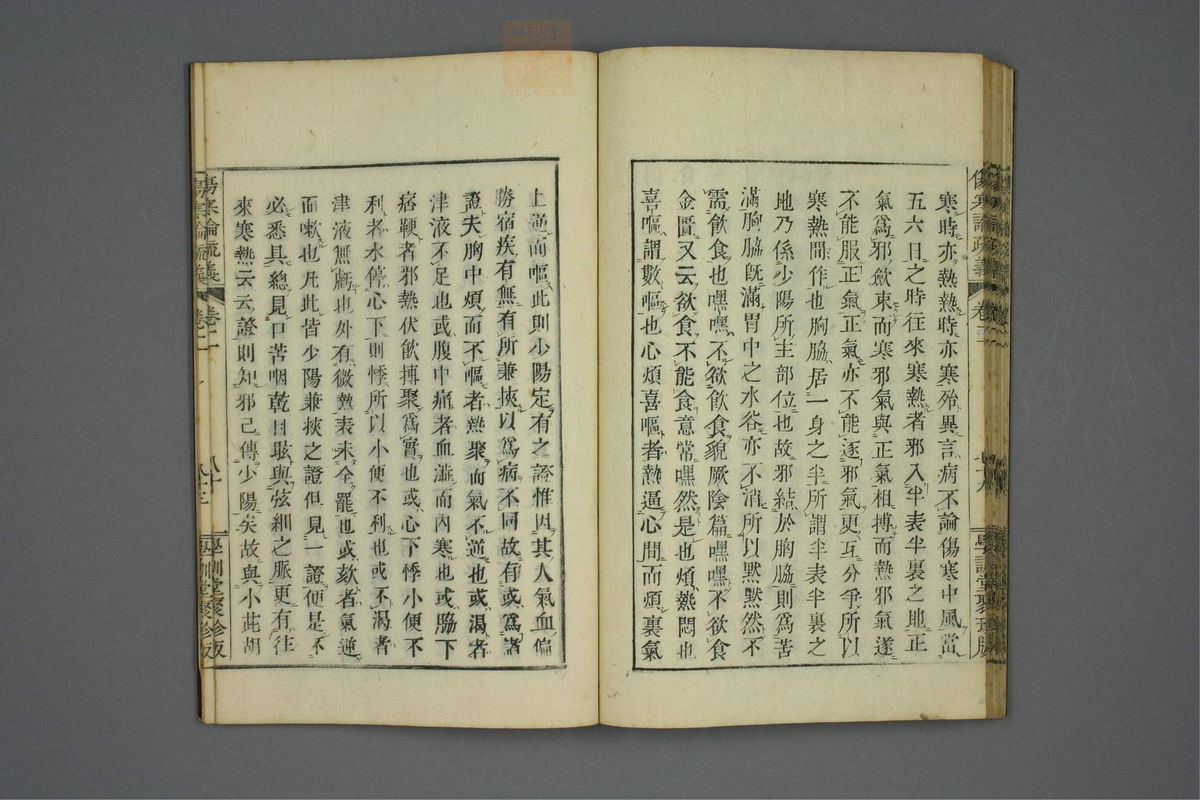 寒時亦熱熱時亦寒殆異言病不論傷寒中風當
五六日之時往來寒熱者邪入半表半裏之地正
氣爲邪斂束而寒邪氣與正氣相搏而熱邪氣遂
不能服正氣正氣亦不能逐邪氣更互分爭所以
寒熱間作也胸脇居一身之半所謂半表半裏之
地乃係少陽所主部位也故邪結於胸脇則爲苦
滿胸脇既滿胃中之水谷亦不消所以默默然不
需飲食也嘿嘿不欲飲食貌厥陰篇嘿嘿不欲食
金匱又云欲食不能食意常嘿然是也煩熱悶也
喜嘔謂數嘔也心煩喜嘔者熱逼心間而煩裏氣
上逆而嘔此則少陽定有之證惟因其人氣血偏
勝宿疾有無有所兼挾以爲病不同故有或爲諸
證夫胸中煩而不嘔者熱聚而氣不逆也或渴者
津液不足也或腹中痛者血澁而內寒也或脇下
痞鞕者邪熱伏飲搏聚爲實也或心下悸小便不
利者水停心下則悸所以小便不利也或不渴者
津液無虧也外有微熱表未全罷也或欬者氣逆
而嗽也凡此皆少陽兼挾之證但見一證便是不
必悉具總見口苦咽乾目眩與弦細之脈更有往
來寒熱云云證則知邪已傳少陽矣故與小此胡
傷寒論疏義 卷二 學訓堂聚珍版